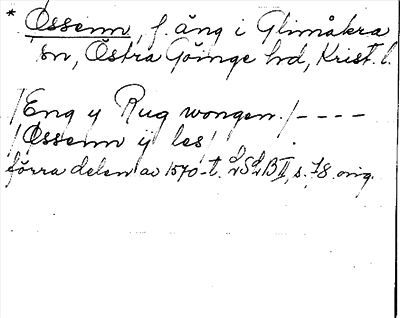 * Ossenn, f. äng i Glimåkra
sn, Östra Göinge hd, Krist. l.
/Eng y Rug wongen./ - - - -
/Ossenn ÿ les/
förra delen av 1570-t. B II, s. 78. orig.